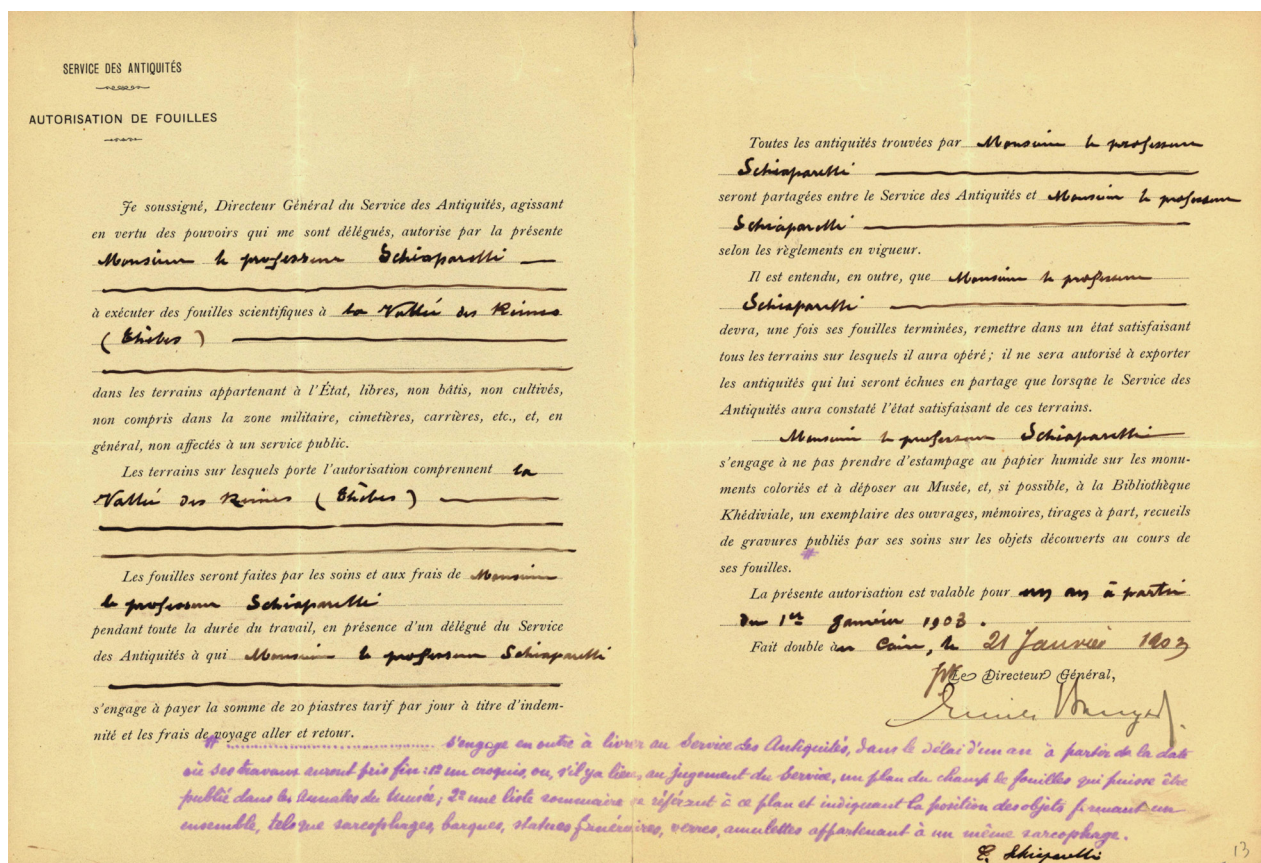 SERVICE DES ANTIQUITÉS
AUTORISATION DE FOUILLES
Je soussigné, Directeur Général du Service des Antiquités, agissant
en vertu des pouvoirs qui me sont délégués, autorise par la présente
Monsieur le professeur Schiaparelli
à exécuter des fouilles scientifiques à la Vallée des Reines
(Thèbes)
dans les terrains appartenant à l'État, libres, non bâtis, non cultivés,
non compris dans la zone militaire, cimetières, carrières, etc., et, en
général, non affectés à un service public.
Les terrains sur lesquels porte l'autorisation comprennent la
Vallée des Reines (Thèbes)
Les fouilles seront faites par les soins et aux frais de Monsieur
le professeur Schiaparelli
pendant toute la durée du travail, en présence d'un délégué du Service
des Antiquités à qui Monsieur le professeur Schiaparelli
s'engage à payer la somme de 20 piastres tarif par jour à titre d'indem-
nité et les frais de voyage aller et retour.
Toutes les antiquités trouvées par Monsieur le professeur
Schiaparelli
seront partagées entre le Service des Antiquités et Monsieur le professeur
Schiaparelli
selon les règlements en vigueur.
Il est entendu, en outre, que Monsieur le professeur
Schiaparelli
devra, une fois ses fouilles terminées, remettre dans un état satisfaisant
tous les terrains sur lesquels il aura opéré ; il ne sera autorisé à exporter
les antiquités qui lui seront échues en partage que lorsque le Service des
Antiquités aura constaté l'état satisfaisant de ces terrains.
Monsieur le professeur Schiaparelli
s'engage à ne pas prendre d'estampage au papier humide sur les monu-
ments coloriés et à déposer au Musée, et, si possible, à la Bibliothèque
Khédiviale, un exemplaire des ouvrages, mémoires, tirages à part, recueils
de gravures publiés par ses soins sur les objets découverts au cours de
#
ses fouilles.
La présente autorisation est valable pour un an à partir
du 1er Janvier 1903.
Fait double au Caire, le 21 Janvier 1903
Le Directeur Général,
# s'engage en outre à livrer au Service des Antiquités, dans le délai d'un an à partir de la date
où ses travaux auront pris fin : 1º un croquis, ou, s'il y a lieu, au jugement du Service, un plan du champ de fouilles qui puisse être
publié dans les Annales du Musée ; 2º une liste sommaire se référant à ce plan et indiquant la position des objets formant un
ensemble, tels que sarcophages, barques, statues funéraires, verres, amulettes appartenant à un même sarcophage.
E. Schiaparelli
13